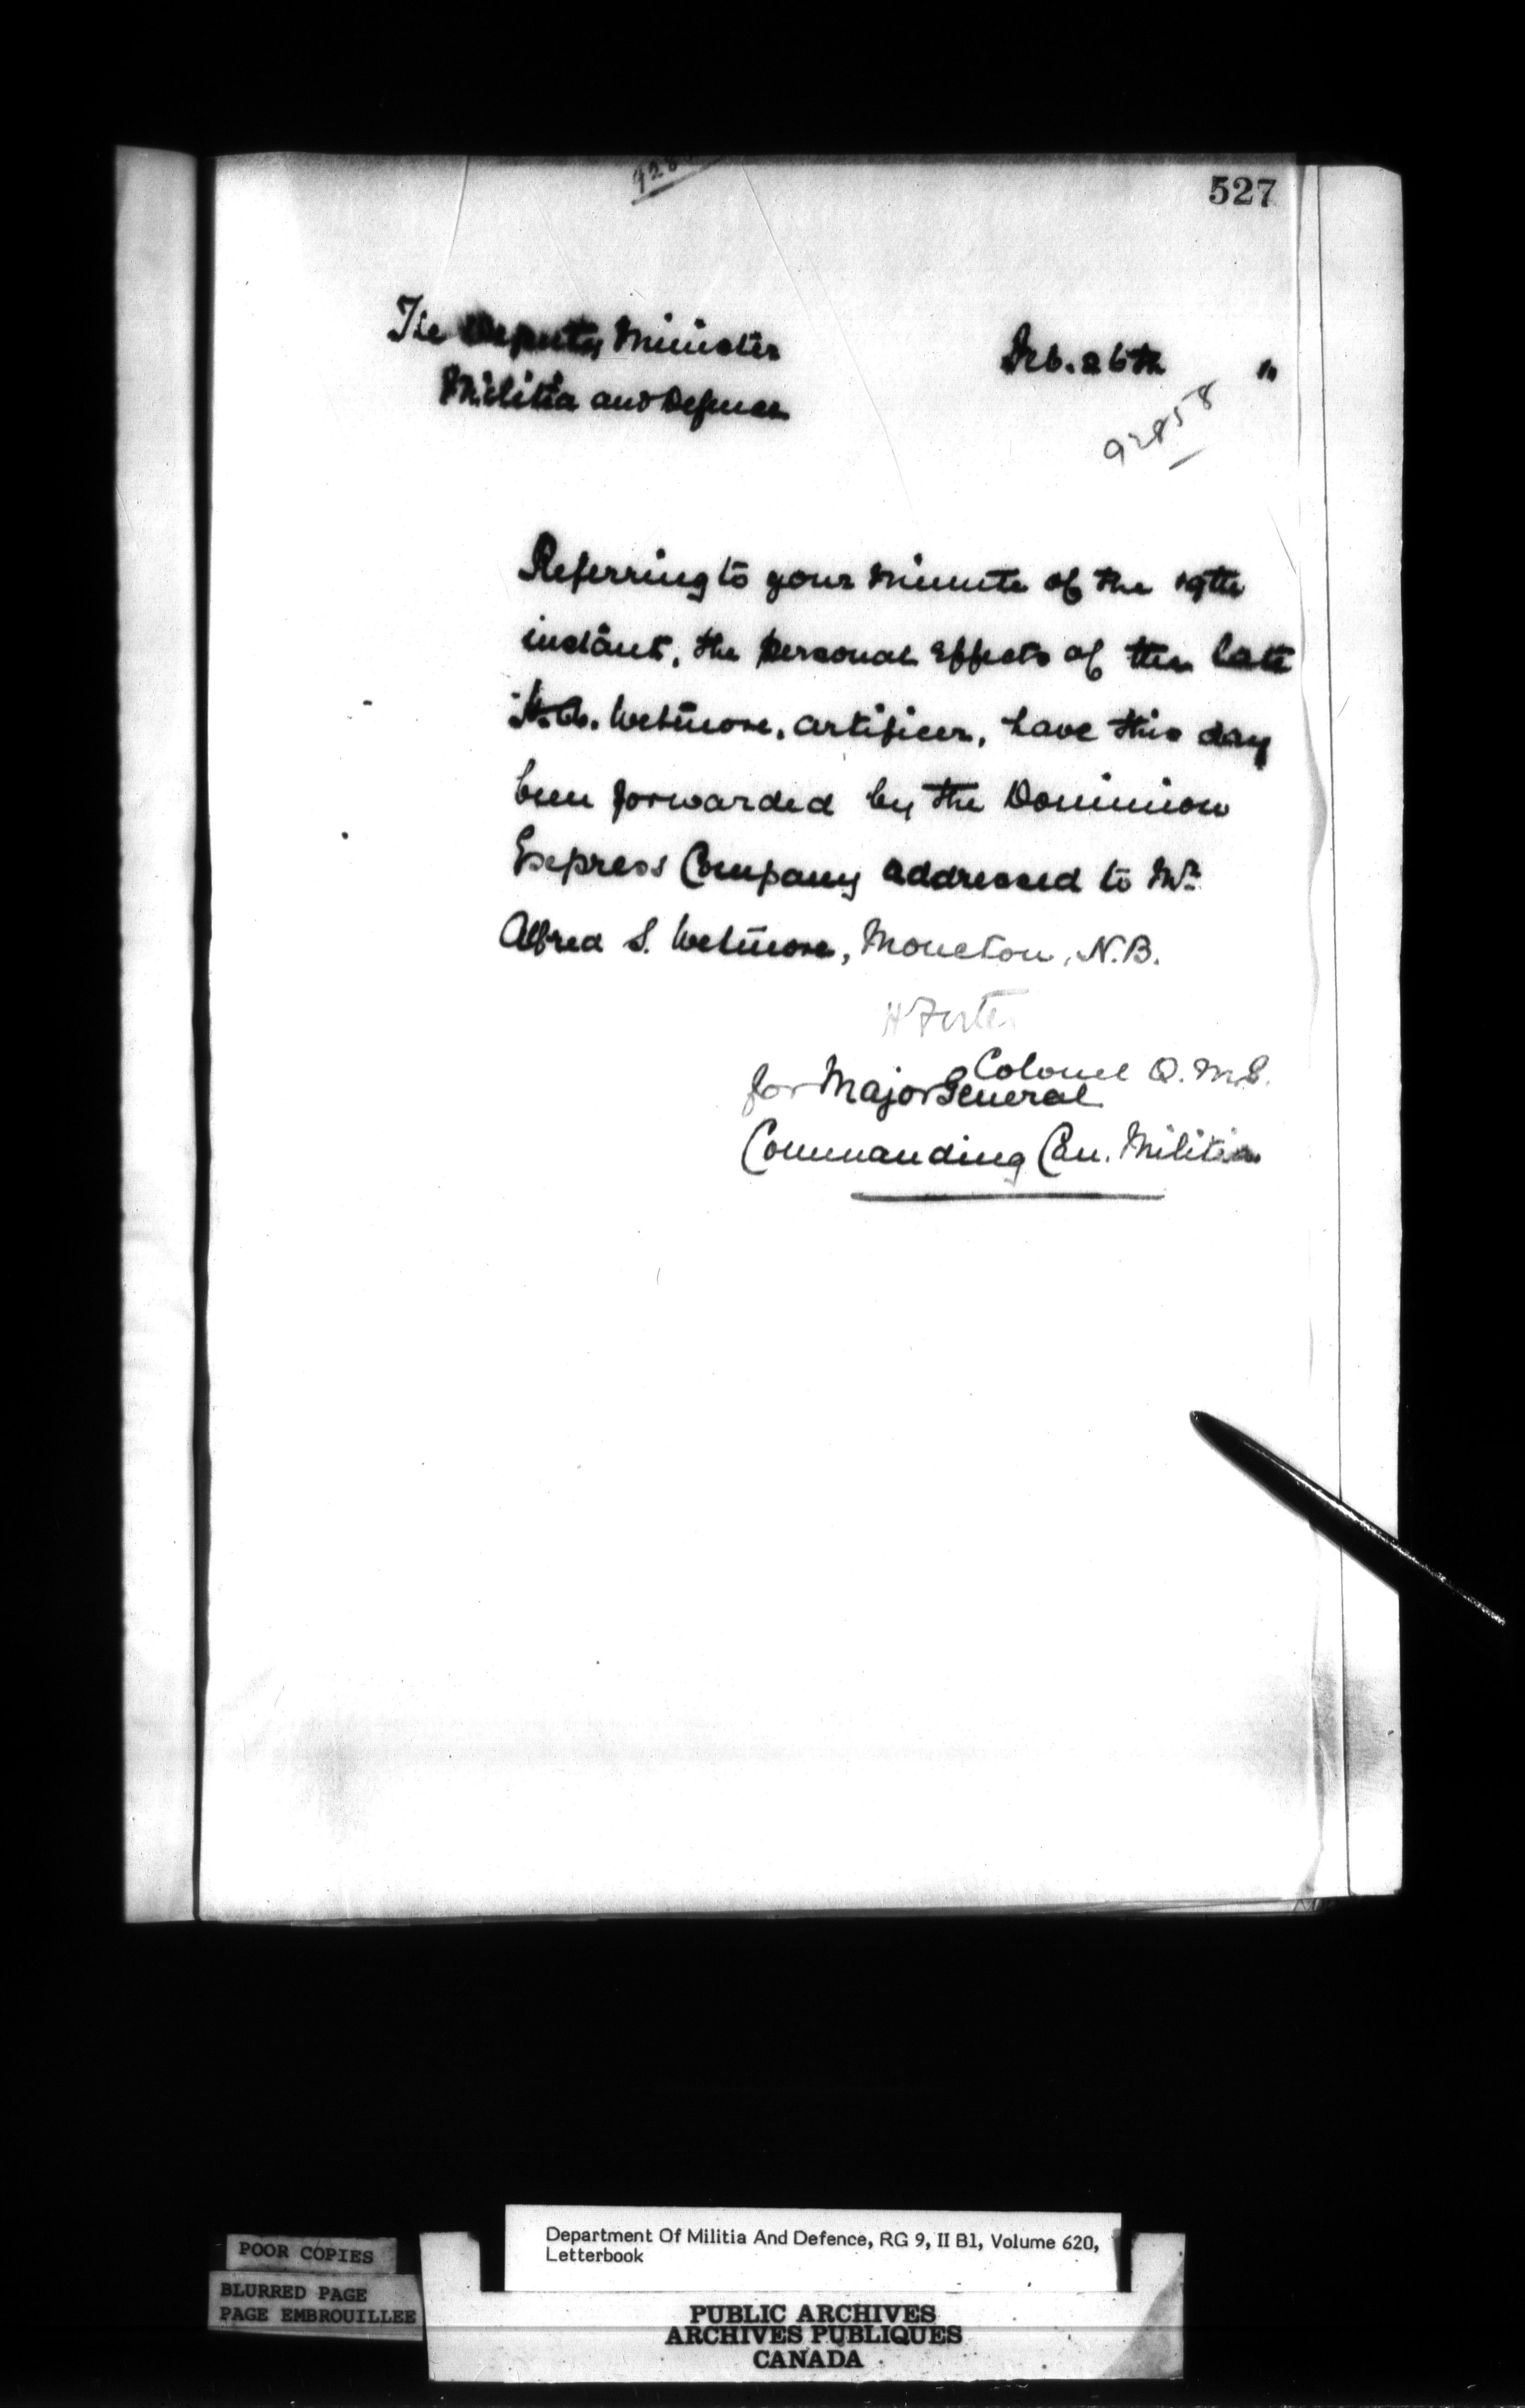 527
The Deputy Minister
Militia and Defence
Feb. 26th "
92858
Referring to your minute of the 19th
instant, the personal effects of the late
Wetmore, artificer, have this day
been forwarded by the Dominion
Express Company addressed to Mr.
Alfred S. Wetmore, Moncton, N.B.
Colonel Q.M.G.
for Major General
Commanding Can. Militia
Department Of Militia And Defence, RG 9, II B1, Volume 620,
Letterbook
POOR COPIES
BLURRED PAGE
PAGE EMBROUILLEE
PUBLIC ARCHIVES
ARCHIVES PUBLIQUES
CANADA